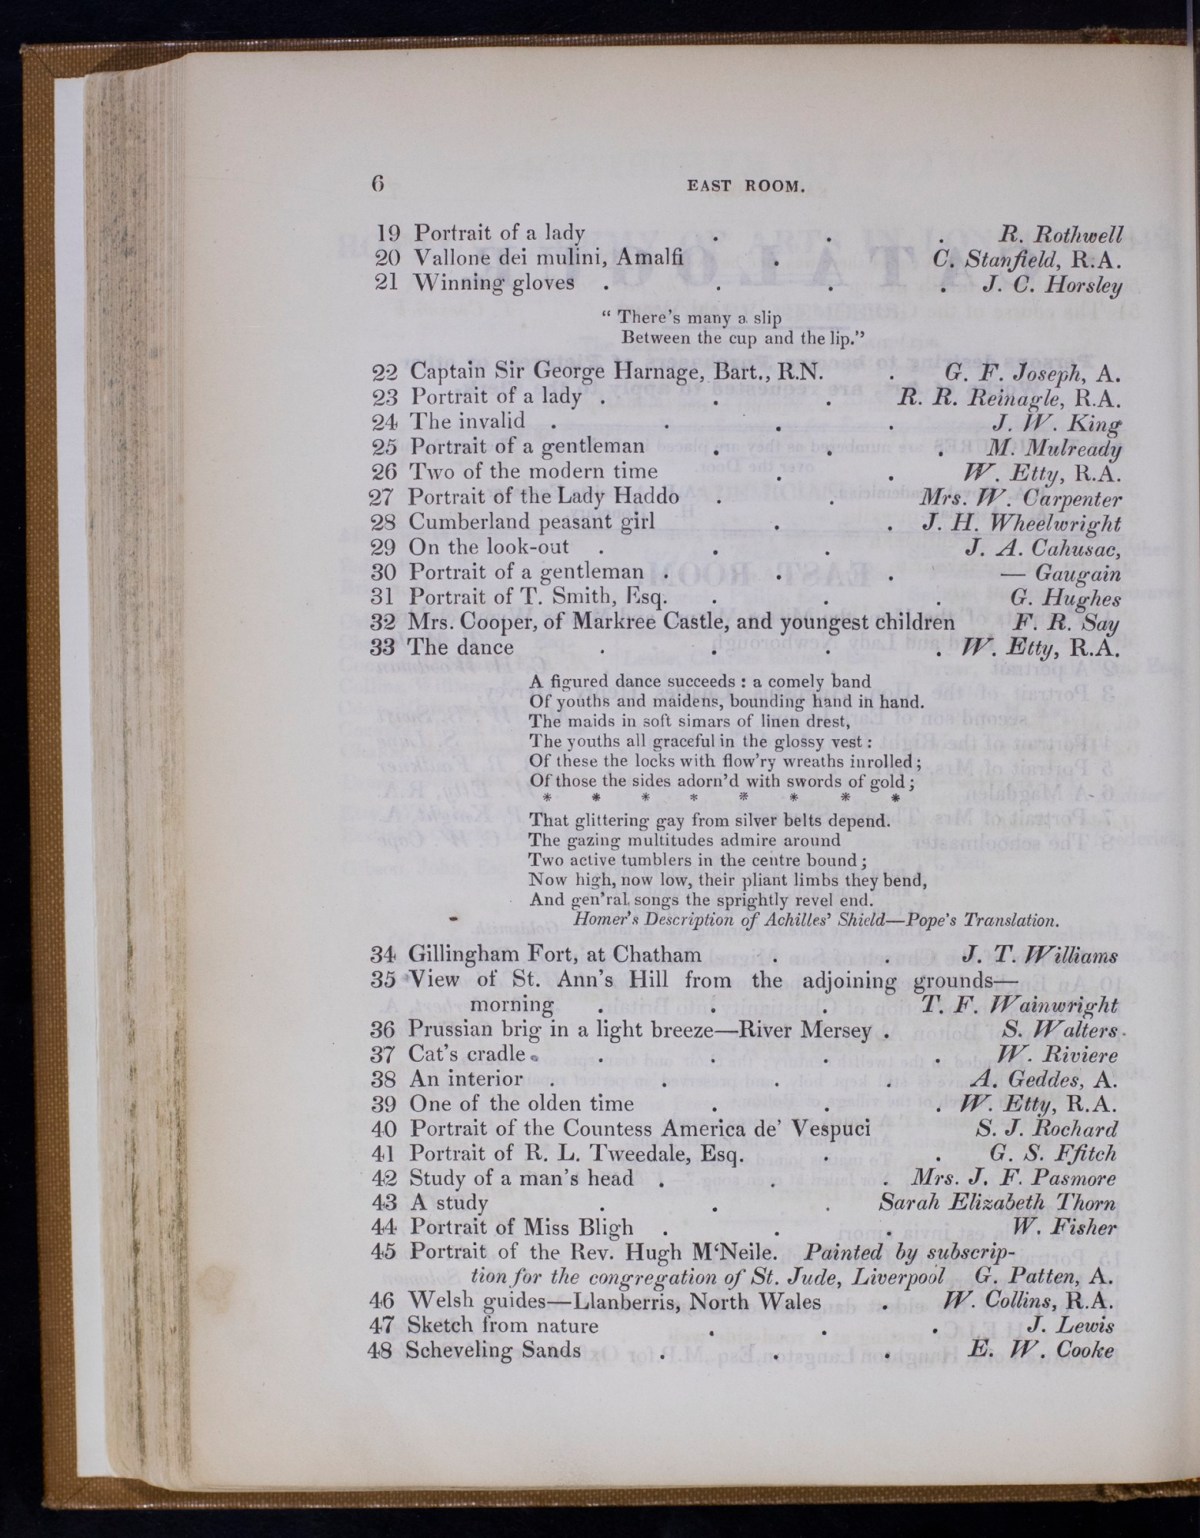 6 EAST ROOM.
19 Portrait of a lady . . . R. Rothwell
20 Vallone dei mulini, Amalfi . C. Stanfield, R.A.
21 Winning gloves . . . . J. C. Horsley
“ There's many a slip
Between the cup and the lip.”
22 Captain Sir George Harnage, Bart., R.N. . G. F. Joseph, A.
23 Portrait of a lady . . . R. R. Reinagle, R.A.
24 The invalid . . . . J. W. King
25 Portrait of a gentleman . . . M. Mulready
26 Two of the modern time . . W. Etty, R.A.
27 Portrait of the Lady Haddo . . Mrs. W. Carpenter
28 Cumberland peasant girl . . J. H. Wheelwright
29 On the look-out . . . J. A. Cahusac,
30 Portrait of a gentleman . . . — Gaugain
31 Portrait of T. Smith, Esq. . . . G. Hughes
32 Mrs. Cooper, of Markree Castle, and youngest children F. R. Say
33 The dance . . . . W. Etty, R.A.
A figured dance succeeds : a comely band
Of youths and maidens, bounding hand in hand.
The maids in soft simars of linen drest,
The youths all graceful in the glossy vest :
Of these the locks with flow'ry wreaths inrolled ;
Of those the sides adorn'd with swords of gold ;
* * * * * * * *
That glittering gay from silver belts depend.
The gazing multitudes admire around
Two active tumblers in the centre bound ;
Now high, now low, their pliant limbs they bend,
And gen'ral songs the sprightly revel end.
Homer's Description of Achilles' Shield—Pope's Translation.
34 Gillingham Fort, at Chatham . . J. T. Williams
35 View of St. Ann's Hill from the adjoining grounds—
morning . . . T. F. Wainwright
36 Prussian brig in a light breeze—River Mersey . S. Walters.
37 Cat's cradle . . . . W. Riviere
38 An interior . . . . A. Geddes, A.
39 One of the olden time . . . W. Etty, R.A.
40 Portrait of the Countess America de' Vespuci S. J. Rochard
41 Portrait of R. L. Tweedale, Esq. . . G. S. Ffitch
42 Study of a man's head . . . Mrs. J. F. Pasmore
43 A study . . . Sarah Elizabeth Thorn
44 Portrait of Miss Bligh . . . W. Fisher
45 Portrait of the Rev. Hugh M‘Neile. Painted by subscrip-
tion for the congregation of St. Jude, Liverpool G. Patten, A.
46 Welsh guides—Llanberris, North Wales . W. Collins, R.A.
47 Sketch from nature . . . J. Lewis
48 Scheveling Sands . . . E. W. Cooke